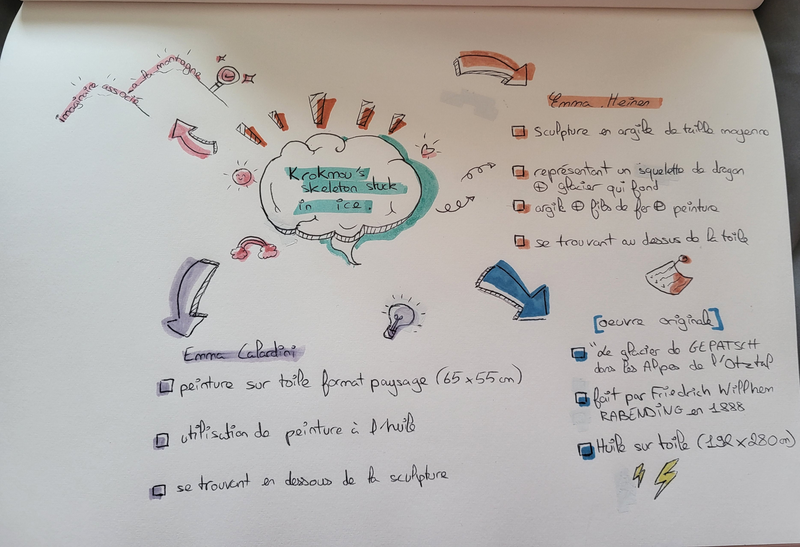 imaginaire associé
à la montagne
Krokmou's
skeleton stuck
in ice.
Emma Heinen
sculpture en argile de taille moyenne
représentant un squelette de dragon
⊕ glacier qui fond
argile ⊕ fils de fer ⊕ peinture
se trouvant au dessus de la toile
Emma Calardini
peinture sur toile format paysage (65 x 55 cm)
utilisation de peinture à l'huile
se trouvant en dessous de la sculpture
[oeuvre originale]
"Le glacier de GEPATSCH
dans les Alpes de l'Otztal
fait par Friedrich Willhem
RABENDING en 1888
Huile sur toile (192 x 280 cm)